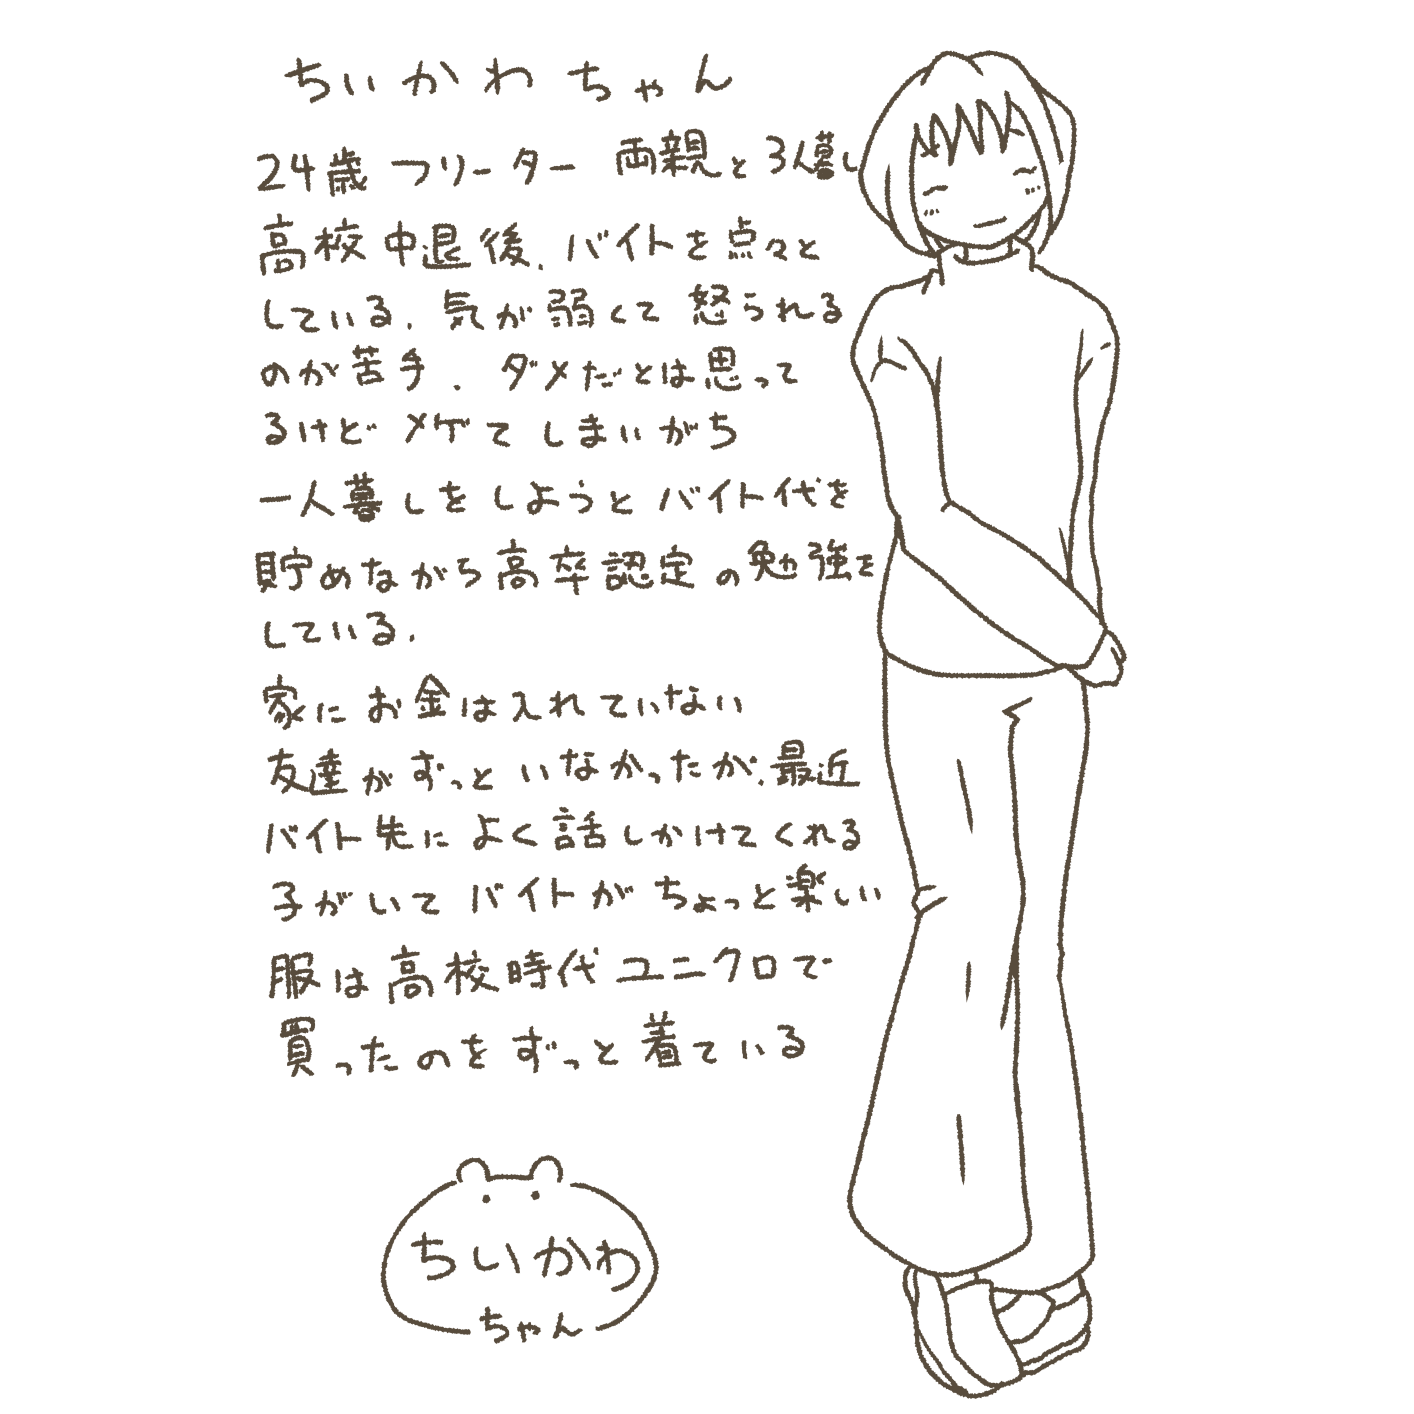 ちいかわちゃん
24歳 フリーター 両親と3人暮し
高校中退後、バイトを点々と
している。気が弱くて怒られる
のが苦手。ダメだとは思って
るけどメゲてしまいがち
一人暮しをしようとバイト代を
貯めながら高卒認定の勉強を
している。
家にお金は入れていない
友達がずっといなかったが、最近
バイト先によく話しかけてくれる
子がいてバイトがちょっと楽しい
服は高校時代ユニクロで
買ったのをずっと着ている
ちいかわ
ちゃん